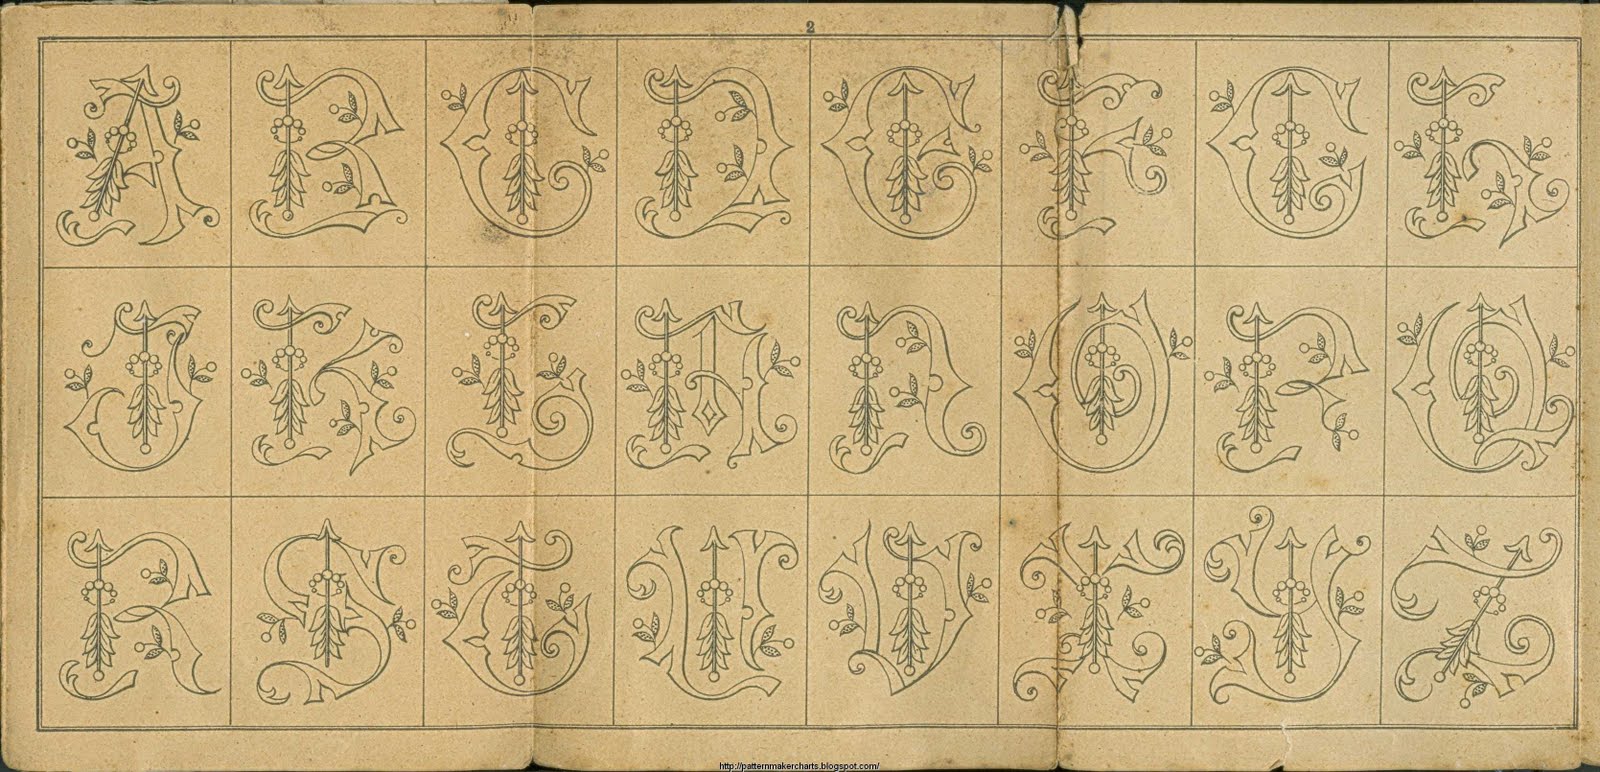 2
A B C D E F G H
J K L M N O P Q
R S T U V X Y Z
http://patternmakercharts.blogspot.com/